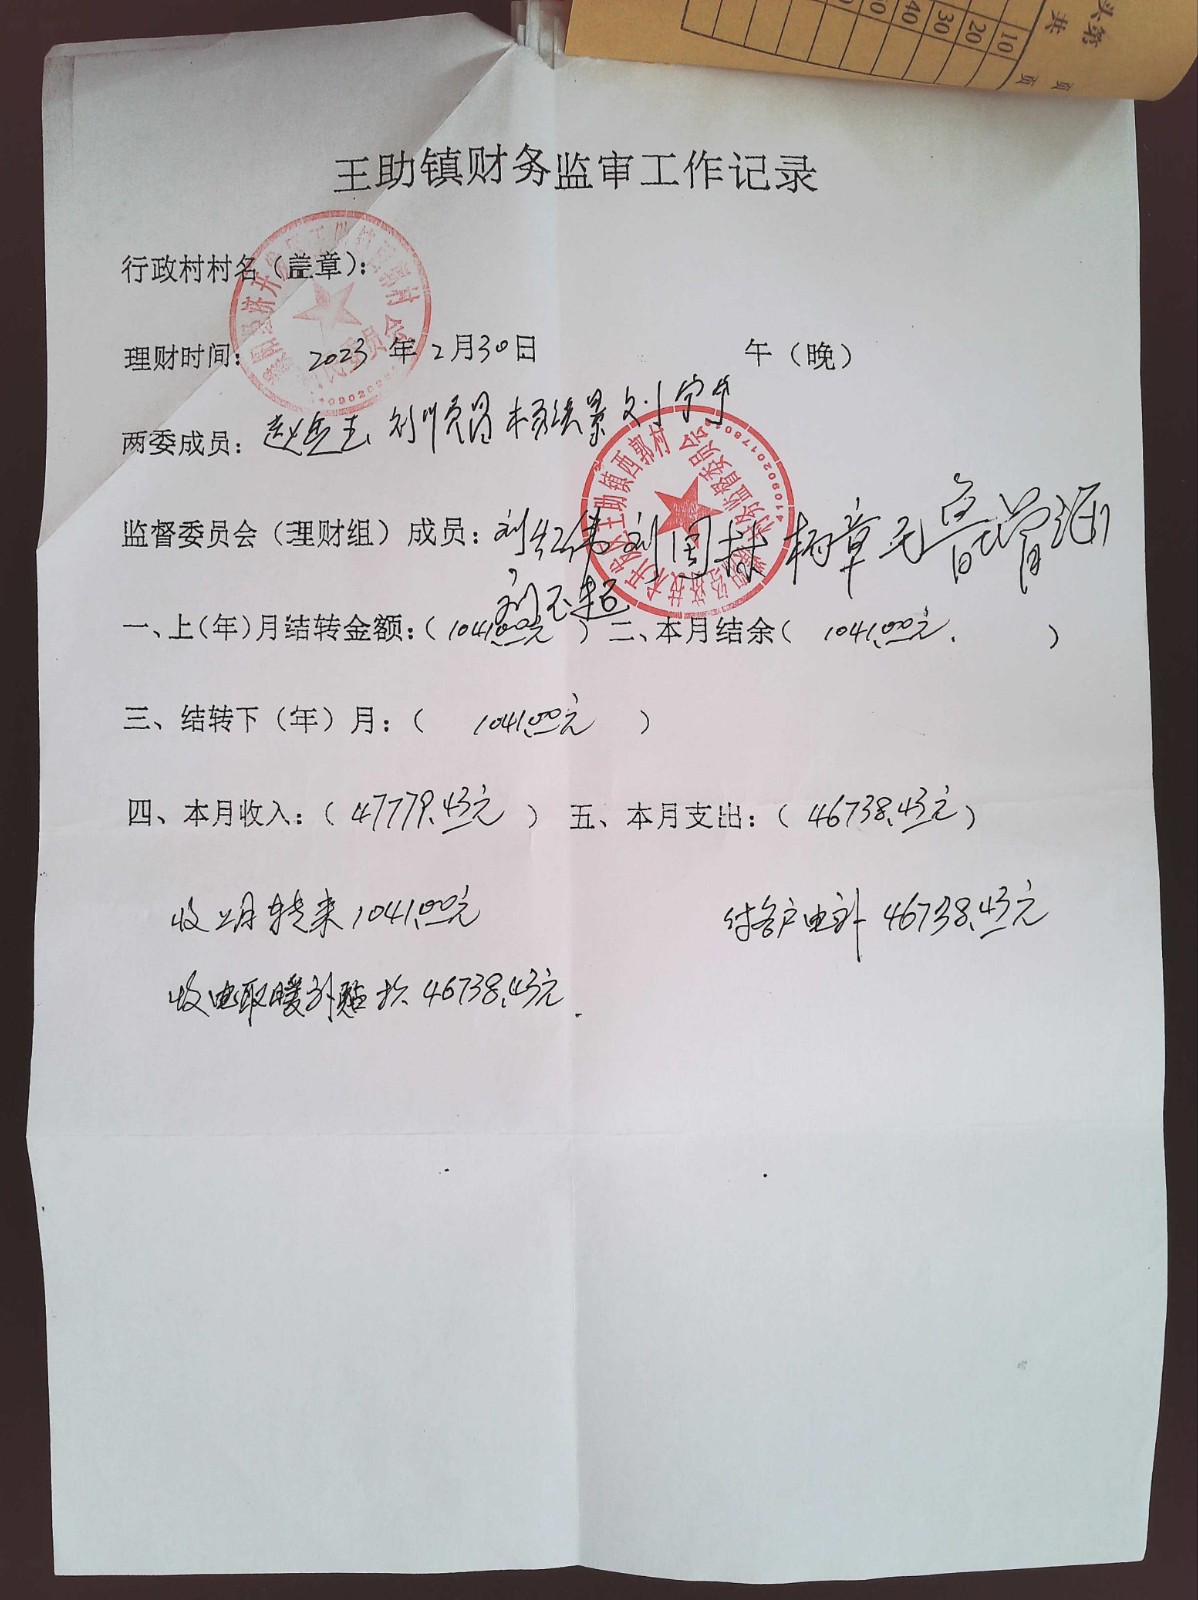 头第 页
共 页
10
20
30
40
王助镇财务监审工作记录
行政村村名（盖章）：
理财时间： 2023年2月30日 午（晚）
两委成员：
监督委员会（理财组）成员：刘红伟 刘国林 杨章元
刘不超
一、上（年）月结转金额：（1041.00元）二、本月结余（1041.00元.）
三、结转下（年）月：（1041.00元）
四、本月收入：（47779.43元）五、本月支出：（46738.43元）
收上月转来1041.00元 付各户电补46738.43元
收电取暖补贴款46738.43元.
王助镇西郭村
务监督委员会